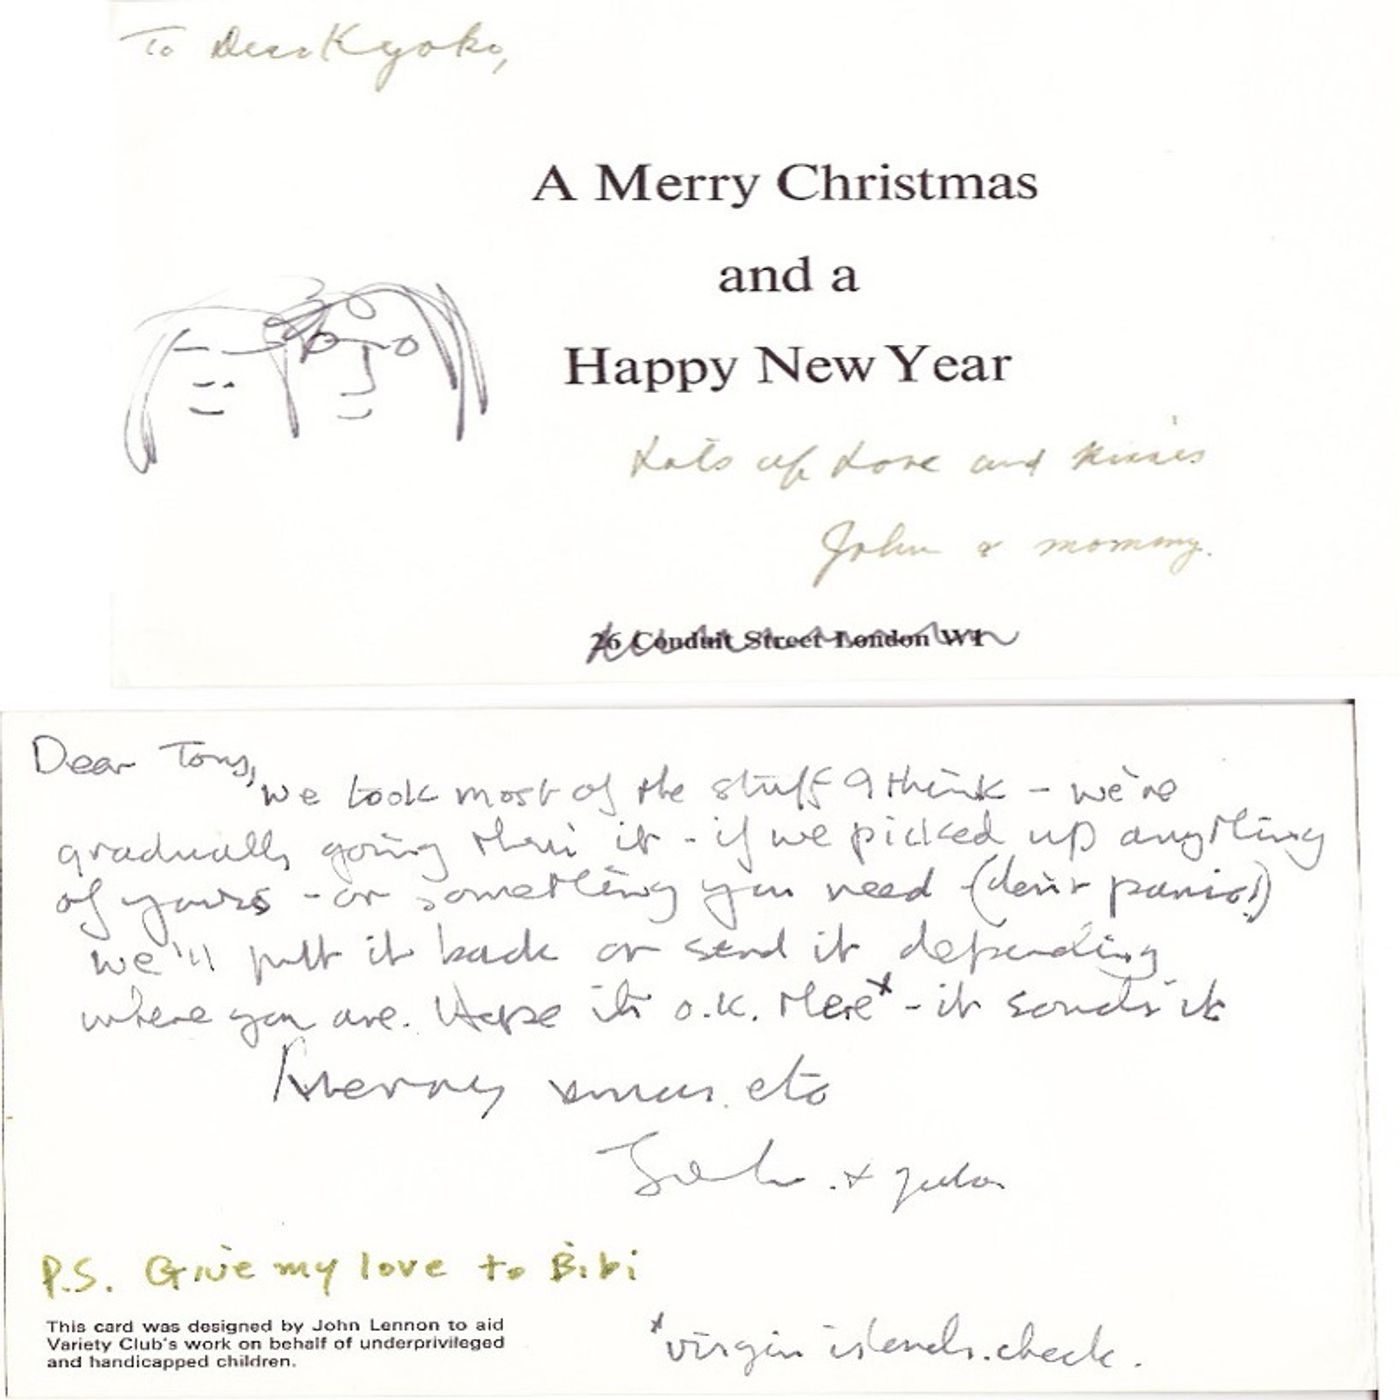 To Dear Kyoko,
A Merry Christmas
and a
Happy New Year
Lots of Love and Kisses
John & mommy.
26 Conduit Street London W1
Dear Tony,
we took most of the stuff I think - we're
gradually going thru' it - if we picked up anything
of yours - or something you need (don't panic!)
we'll putt it back or send it depending
where you are. Hope it's o.k. there* - it sounds it
Merry xmas. etc
John . +
P.S. Give my love to Bibi
This card was designed by John Lennon to aid
Variety Club's work on behalf of underprivileged
and handicapped children.
*virgin islands. check.